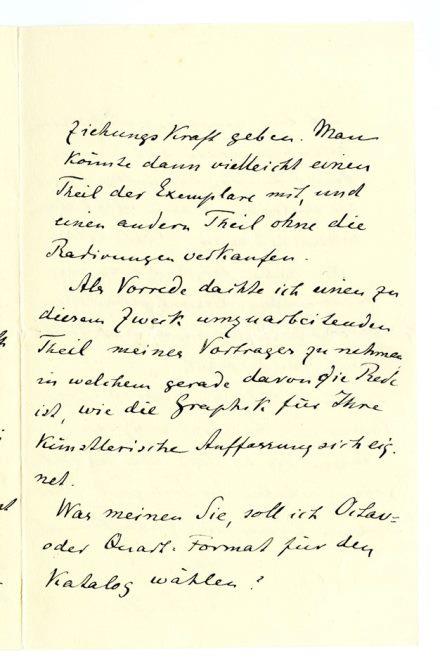 ziehungskraft geben. Man
könnte dann vielleicht einen
Theil der Exemplare mit, und
einen andern Theil ohne die
Radirungen verkaufen.
Als Vorrede dachte ich einen zu
diesem Zweck umzuarbeitenden
Theil meines Vortrages zu nehmen
in welchem gerade davon die Rede
ist, wie die Graphik für Ihre
künstlerische Auffassung sich eig-
net.
Was meinen Sie, soll ich Octav=
oder Quart-Format für den
Katalog wählen?